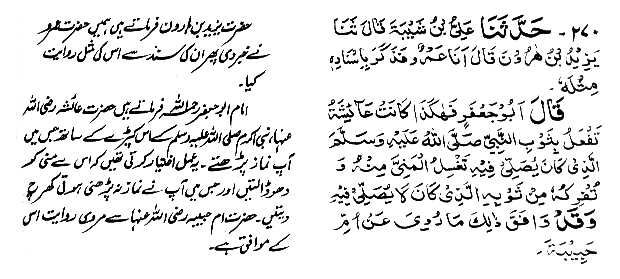 ۲۷۰ - حَدَّثَنَا عَلِیُّ بْنُ شَیْبَةَ قَالَ ثَنَا
یَزِیْدُ بْنُ هٰرُوْنَ قَالَ اَنَا عَمْرٌو فَذَکَرَ بِاِسْنَادِهٖ
مِثْلَهٗ۔
قَالَ اَبُوْجَعْفَرٍ فَهٰکَذَا کَانَتْ عَائِشَةُ
تَفْعَلُ بِثَوْبِ النَّبِیِّ صَلَّی اللّٰهُ عَلَیْهِ وَسَلَّمَ
الَّذِیْ کَانَ یُصَلِّیْ فِیْهِ تَغْسِلُ الْمَنِیَّ مِنْهُ وَ
تَفْرُکُهٗ مِنْ ثَوْبِهِ الَّذِیْ کَانَ لَا یُصَلِّیْ فِیْهِ
وَقَدْ وَافَقَ ذٰلِکَ مَا رُوِیَ عَنْ اُمِّ
حَبِیْبَةَ۔
حضرت یزید بن ہارون فرماتے ہیں ہمیں حضرت عمرو
نے خبر دی پھر ان کی سند سے اس کی مثل روایت
کیا۔
امام ابوجعفر رحمہ اللہ فرماتے ہیں حضرت عائشہ رضی اللہ
عنہا نبی اکرم صلی اللہ علیہ وسلم کے اس کپڑے کے ساتھ جس میں
آپ نماز پڑھتے۔ یہ عمل اختیار کرتی تھیں کہ اس سے منی کو
دھو ڈالتیں اور جس میں آپ نے نماز نہ پڑھنی ہوتی کھرچ
دیتیں۔ حضرت ام حبیبہ رضی اللہ عنہا سے مروی روایت اس
کے موافق ہے۔